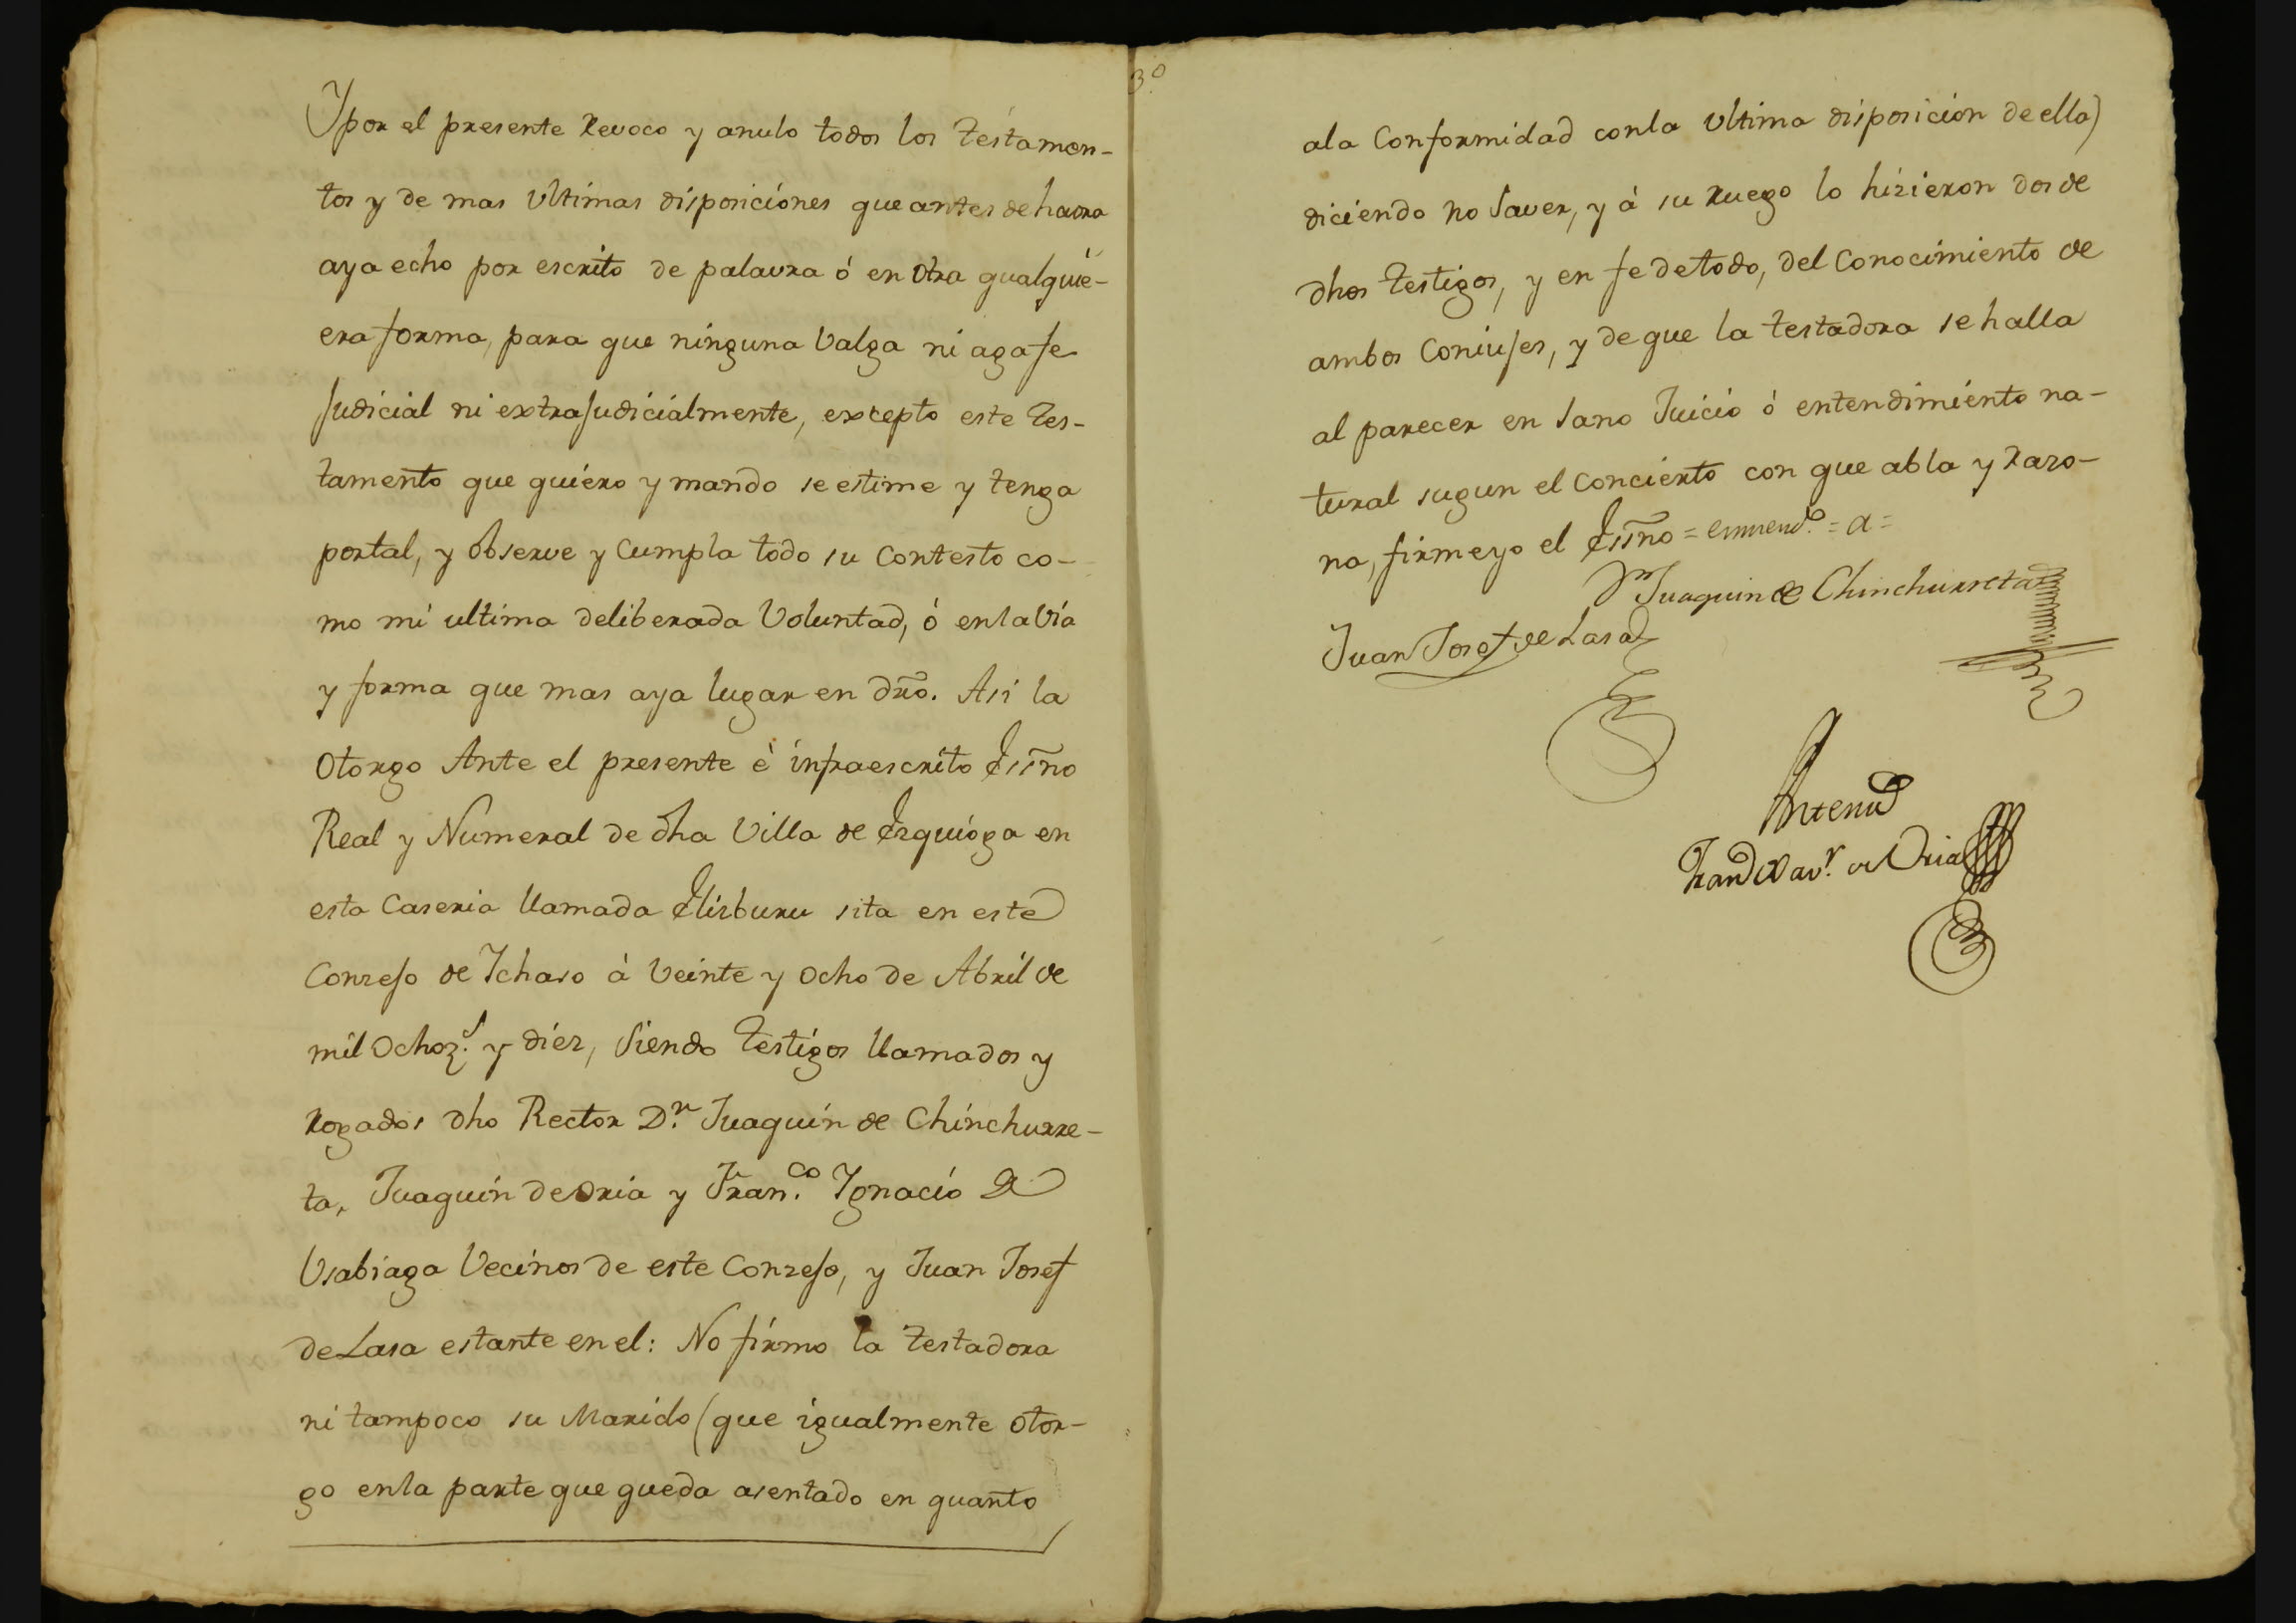 Ypor el presente Revoco y anulo todos los testamen-
tos y de mas Vltimas disposiciónes que antes de haora
aya echo por escrito de palavra ó en Otra qualquie-
era forma, para que ninguna Valga ni aga fe
Judicial ni extraJudicialmente, excepto este tes-
tamento que quiero y mando se estime y tenga
portal, y observe y Cumpla todo su Contesto co-
mo mi ultima deliberada Voluntad, ó enla Vía
y forma que mas aya lugar en dr̃o. Asi la
Otorgo Ante el presente è infraescrito Essño
Real y Numeral de dha Villa de Ezquióga en
esta Caseria llamada Elizburu sita en este
Conzejo de Ychaso à Veinte y Ocho de Abril de
mil Ochoz.s y diéz, Siendo testigos llamados y
Rogados dho Rector D.n Juaquín de Chinchurre-
ta, Juaquin de Oria y Fran.co Ygnacio de
Vsabiaga Vecinos de este Conzejo, y Juan Josef
de Lasa estante en el: No firmo la testadora
ni tampoco su Marido (que igualmente otor-
go enla parte que queda asentado en quanto
3º
ala Conformidad conla Vltima disposición de ella)
diciéndo no Saver, y á su Ruego lo hizieron dos de
dhos testigos, y en fe detodo, del Conocimiento de
ambos Coniujes, y de que la testadora se halla
al parecer en Sano Juicio ó entendimiénto na-
tural sugun el Conciérto con que abla y Razo-
na, firmeyo el Essño = enmend.º = a =
D.n Juaquin de Chinchurreta
Juan Josef de Lasa
Antemi
Fran.co Xav.r de Oria